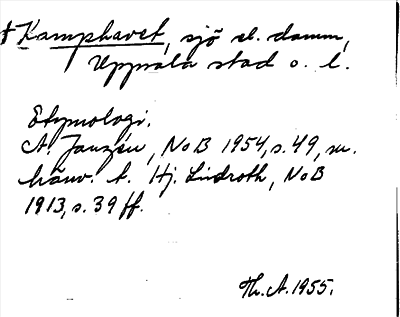 † Kamphavet, sjö el. damm,
Uppsala stad o. l.
Etymologi.
A. Janzén, NoB 1954, s. 49, m.
hänv. t. Hj. Lindroth, NoB
1913, s. 39 ff.
Th. A. 1955.